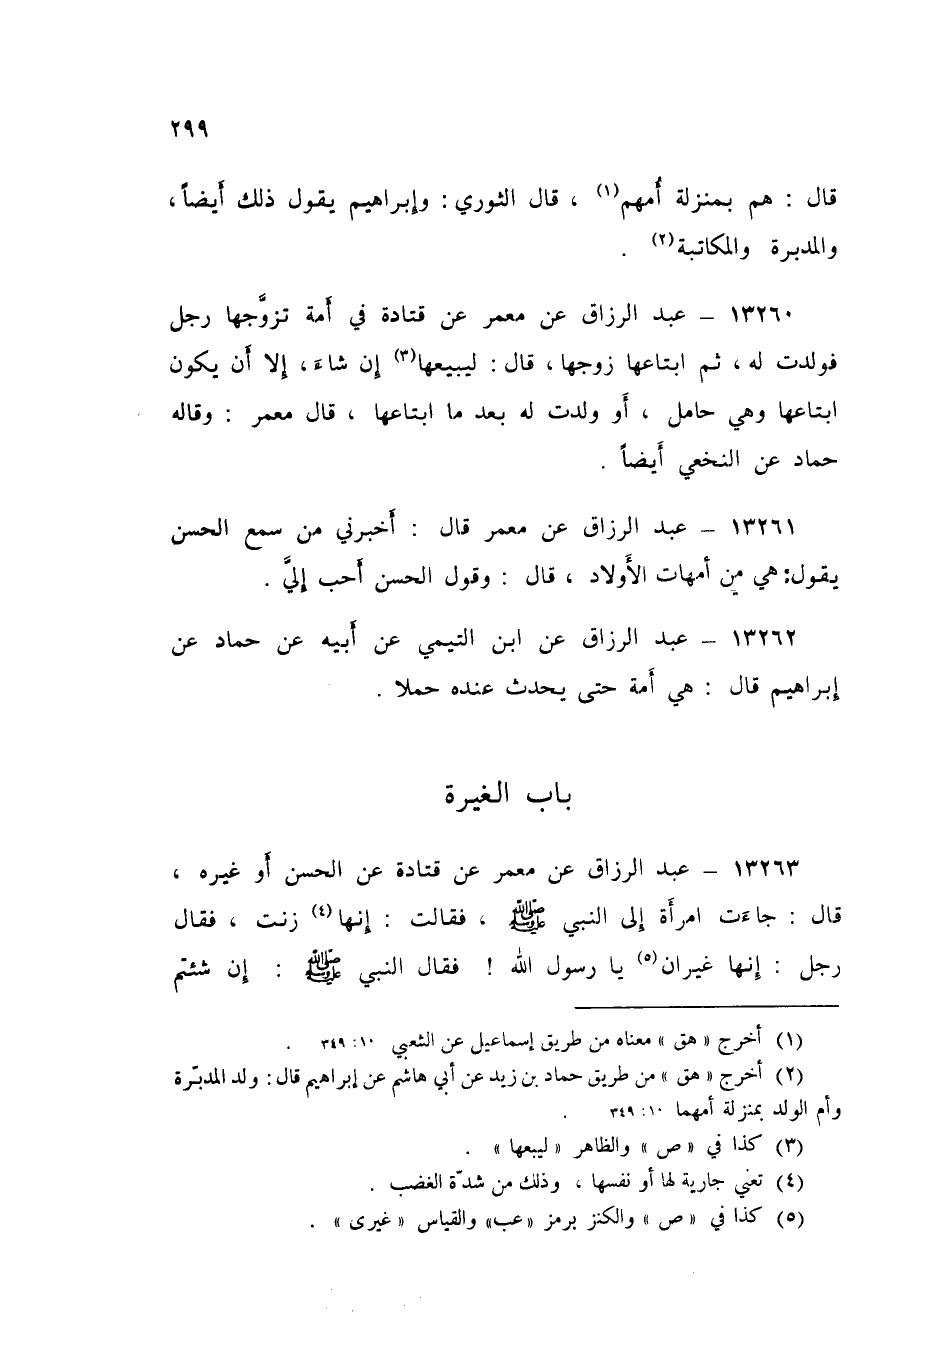 ٢٩٩
قال : هم بمنزلة أُمهم(١) ، قال الثوري : وإبراهيم يقول ذلك أَيضاً ،
والمدبرة والمكاتبة(٢) .
١٣٢٦٠ – عبد الرزاق عن معمر عن قتادة في أَمة تزوَّجها رجل
فولدت له ، ثم ابتاعها زوجها ، قال : ليبيعها(٣) إن شاءَ ، إلا أَن يكون
ابتاعها وهي حامل ، أَو ولدت له بعد ما ابتاعها ، قال معمر : وقاله
حماد عن النخعي أَيضاً .
١٣٢٦١ – عبد الرزاق عن معمر قال : أَخبرني من سمع الحسن
يقول: هي من أمهات الأَولاد ، قال : وقول الحسن أَحب إليَّ .
١٣٢٦٢ – عبد الرزاق عن ابن التيمي عن أَبيه عن حماد عن
إبراهيم قال : هي أَمة حتى يحدث عنده حملا .
باب الغيرة
١٣٢٦٣ – عبد الرزاق عن معمر عن قتادة عن الحسن أَو غيره ،
قال : جاءَت امرأَة إلى النبي ﷺ ، فقالت : إنها(٤) زنت ، فقال
رجل : إنها غيران(٥) يا رسول الله ! فقال النبي ﷺ : إن شئتم
(١) أخرج « هق » معناه من طريق إسماعيل عن الشعبي ١٠: ٣٤٩ .
(٢) أخرج « هق » من طريق حماد بن زيد عن أبي هاشم عن إبراهيم قال : ولد المدبّرة
وأم الولد بمنزلة أمهما ١٠: ٣٤٩ .
(٣) كذا في « ص » والظاهر « ليبعها » .
(٤) تعني جارية لها أو نفسها ، وذلك من شدّة الغضب .
(٥) كذا في « ص » والكنز برمز «عب» والقياس « غيرى » .